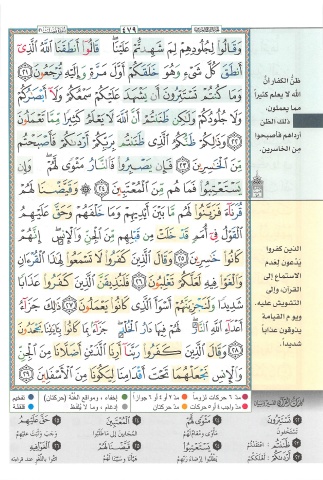 ٤٧٩
وَقَالُوا۟ لِجُلُودِهِمْ لِمَ شَهِدتُّمْ عَلَيْنَا ۖ قَالُوٓا۟ أَنطَقَنَا ٱللَّهُ ٱلَّذِىٓ
أَنطَقَ كُلَّ شَىْءٍ وَهُوَ خَلَقَكُمْ أَوَّلَ مَرَّةٍ وَإِلَيْهِ تُرْجَعُونَ ﴿٢١﴾
وَمَا كُنتُمْ تَسْتَتِرُونَ أَن يَشْهَدَ عَلَيْكُمْ سَمْعُكُمْ وَلَآ أَبْصَٰرُكُمْ
وَلَا جُلُودُكُمْ وَلَٰكِن ظَنَنتُمْ أَنَّ ٱللَّهَ لَا يَعْلَمُ كَثِيرًا مِّمَّا تَعْمَلُونَ
﴿٢٢﴾ وَذَٰلِكُمْ ظَنُّكُمُ ٱلَّذِى ظَنَنتُم بِرَبِّكُمْ أَرْدَىٰكُمْ فَأَصْبَحْتُم
مِّنَ ٱلْخَٰسِرِينَ ﴿٢٣﴾ فَإِن يَصْبِرُوا۟ فَٱلنَّارُ مَثْوًى لَّهُمْ ۖ وَإِن
يَسْتَعْتِبُوا۟ فَمَا هُم مِّنَ ٱلْمُعْتَبِينَ ﴿٢٤﴾ وَقَيَّضْنَا لَهُمْ
قُرَنَآءَ فَزَيَّنُوا۟ لَهُم مَّا بَيْنَ أَيْدِيهِمْ وَمَا خَلْفَهُمْ وَحَقَّ عَلَيْهِمُ
ٱلْقَوْلُ فِىٓ أُمَمٍ قَدْ خَلَتْ مِن قَبْلِهِم مِّنَ ٱلْجِنِّ وَٱلْإِنسِ ۖ إِنَّهُمْ
كَانُوا۟ خَٰسِرِينَ ﴿٢٥﴾ وَقَالَ ٱلَّذِينَ كَفَرُوا۟ لَا تَسْمَعُوا۟ لِهَٰذَا ٱلْقُرْءَانِ
وَٱلْغَوْا۟ فِيهِ لَعَلَّكُمْ تَغْلِبُونَ ﴿٢٦﴾ فَلَنُذِيقَنَّ ٱلَّذِينَ كَفَرُوا۟ عَذَابًا
شَدِيدًا وَلَنَجْزِيَنَّهُمْ أَسْوَأَ ٱلَّذِى كَانُوا۟ يَعْمَلُونَ ﴿٢٧﴾ ذَٰلِكَ جَزَآءُ
أَعْدَآءِ ٱللَّهِ ٱلنَّارُ ۖ لَهُمْ فِيهَا دَارُ ٱلْخُلْدِ ۖ جَزَآءًۢ بِمَا كَانُوا۟ بِـَٔايَٰتِنَا يَجْحَدُونَ
﴿٢٨﴾ وَقَالَ ٱلَّذِينَ كَفَرُوا۟ رَبَّنَآ أَرِنَا ٱلَّذَيْنِ أَضَلَّانَا مِنَ ٱلْجِنِّ
وَٱلْإِنسِ نَجْعَلْهُمَا تَحْتَ أَقْدَامِنَا لِيَكُونَا مِنَ ٱلْأَسْفَلِينَ ﴿٢٩﴾
ظنُّ الكفار أنَّ
الله لا يعلم كثيراً
مما يعملون،
ذلك الظن
أرداهم فأصبحوا
من الخاسرين.
الذين كفروا
يدعون لعدم
الاستماع إلى
القرآن، وإلى
التشويش عليه.
ويوم القيامة
يذوقون عذاباً
شديداً.
مدّ ٦ حركات لزوماً
مدّ ٢ أو ٤ أو ٦ جوازاً
إخفاء، ومواقع الغُنَّة (حركتان)
تفخيم
مدّ واجب ٤ أو ٥ حركات
مدّ حركتان
إدغام، وما لا يُلفَظ
قلقلة